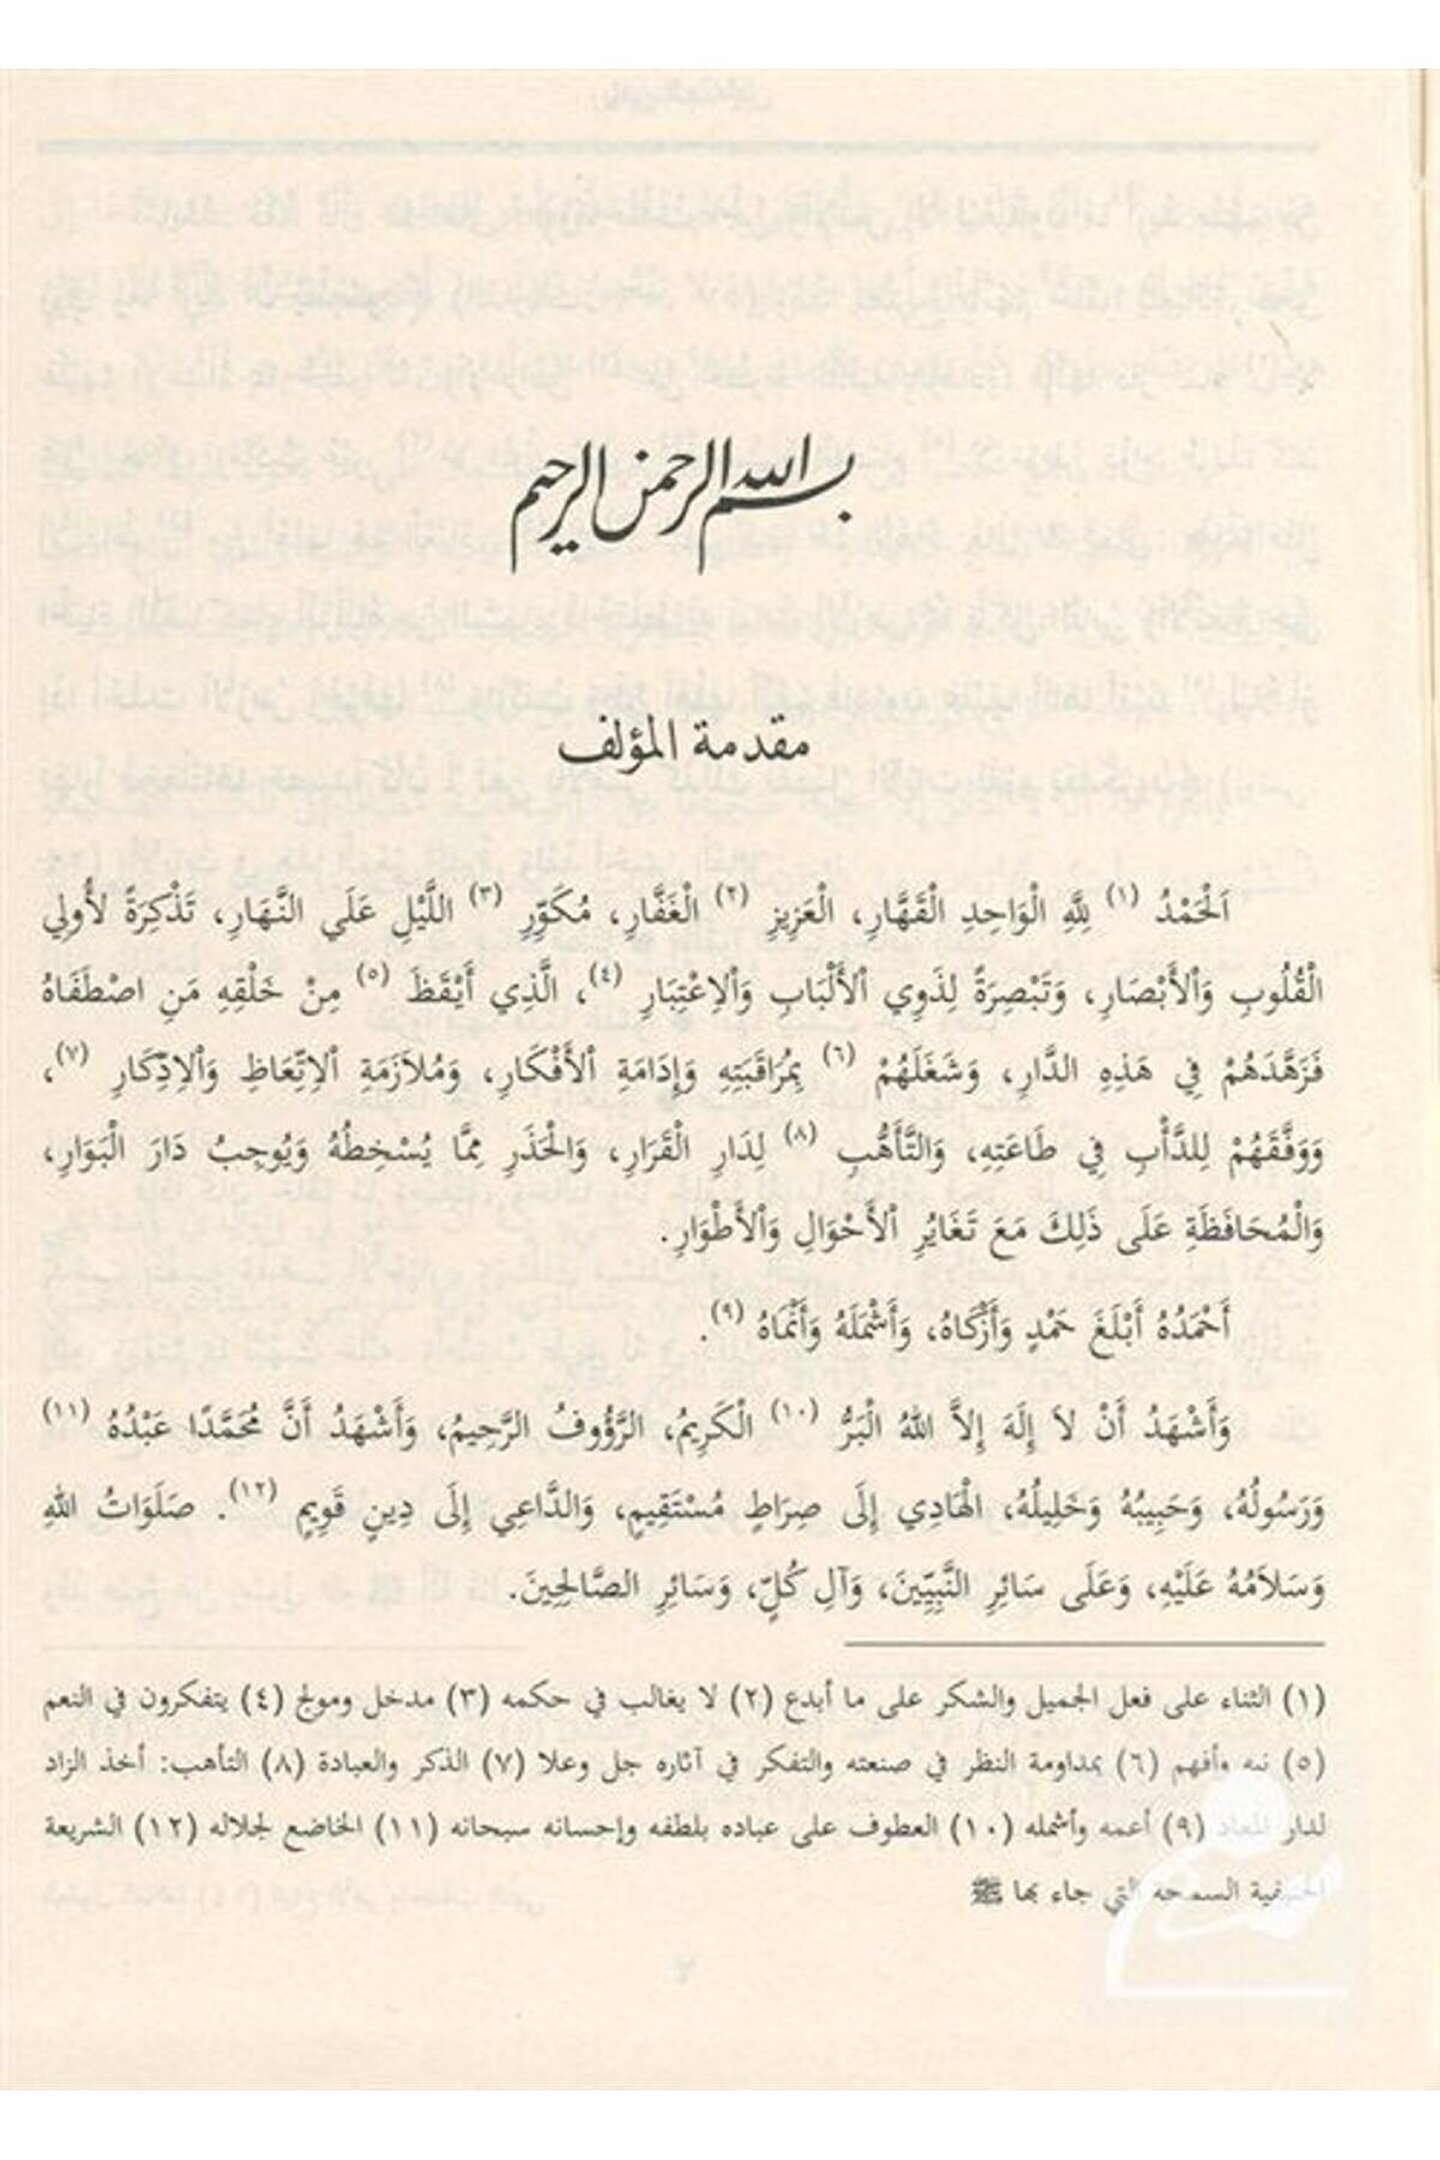 بسم الله الرحمن الرحيم
مقدمة المؤلف
اَلْحَمْدُ (١) لِلَّهِ الْوَاحِدِ الْقَهَّارِ، الْعَزِيزِ (٢) الْغَفَّارِ، مُكَوِّرِ (٣) اللَّيْلِ عَلَي النَّهَارِ، تَذْكِرَةً لأُولِي
الْقُلُوبِ وَٱلأَبْصَارِ، وَتَبْصِرَةً لِذَوِي ٱلأَلْبَابِ وَٱلاِعْتِبَارِ (٤)، الَّذِي أَيْقَظَ (٥) مِنْ خَلْقِهِ مَنِ اصْطَفَاهُ
فَزَهَّدَهُمْ فِي هَذِهِ الدَّارِ، وَشَغَلَهُمْ (٦) بِمُرَاقَبَتِهِ وَإِدَامَةِ ٱلأَفْكَارِ، وَمُلاَزَمَةِ ٱلاِتِّعَاظِ وَٱلاِدِّكَارِ (٧)،
وَوَفَّقَهُمْ لِلدَّأْبِ فِي طَاعَتِهِ، وَالتَّأَهُّبِ (٨) لِدَارِ الْقَرَارِ، وَالْحَذَرِ مِمَّا يُسْخِطُهُ وَيُوجِبُ دَارَ الْبَوَارِ،
وَالْمُحَافَظَةِ عَلَى ذَلِكَ مَعَ تَغَايُرِ ٱلأَحْوَالِ وَٱلأَطْوَارِ.
أَحْمَدُهُ أَبْلَغَ حَمْدٍ وَأَزْكَاهُ، وَأَشْمَلَهُ وَأَنْمَاهُ (٩).
وَأَشْهَدُ أَنْ لاَ إِلَهَ إِلاَّ اللهُ الْبَرُّ (١٠) الْكَرِيمُ، الرَّؤُوفُ الرَّحِيمُ، وَأَشْهَدُ أَنَّ مُحَمَّدًا عَبْدُهُ (١١)
وَرَسُولُهُ، وَحَبِيبُهُ وَخَلِيلُهُ، الْهَادِي إِلَى صِرَاطٍ مُسْتَقِيمٍ، وَالدَّاعِي إِلَى دِينٍ قَوِيمٍ (١٢). صَلَوَاتُ اللهِ
وَسَلاَمُهُ عَلَيْهِ، وَعَلَى سَائِرِ النَّبِيِّينَ، وَآلِ كُلٍّ، وَسَائِرِ الصَّالِحِينَ.
(١) الثناء على فعل الجميل والشكر على ما أبدع (٢) لا يغالب في حكمه (٣) مدخل ومولج (٤) يتفكرون في النعم
(٥) نبه وأفهم (٦) بمداومة النظر في صنعته والتفكر في آثاره جل وعلا (٧) الذكر والعبادة (٨) التأهب: أخذ الزاد
لدار المعاد (٩) أعمه وأشمله (١٠) العطوف على عباده بلطفه وإحسانه سبحانه (١١) الخاضع لجلاله (١٢) الشريعة
الحنيفية السمحه التي جاء بها ﷺ